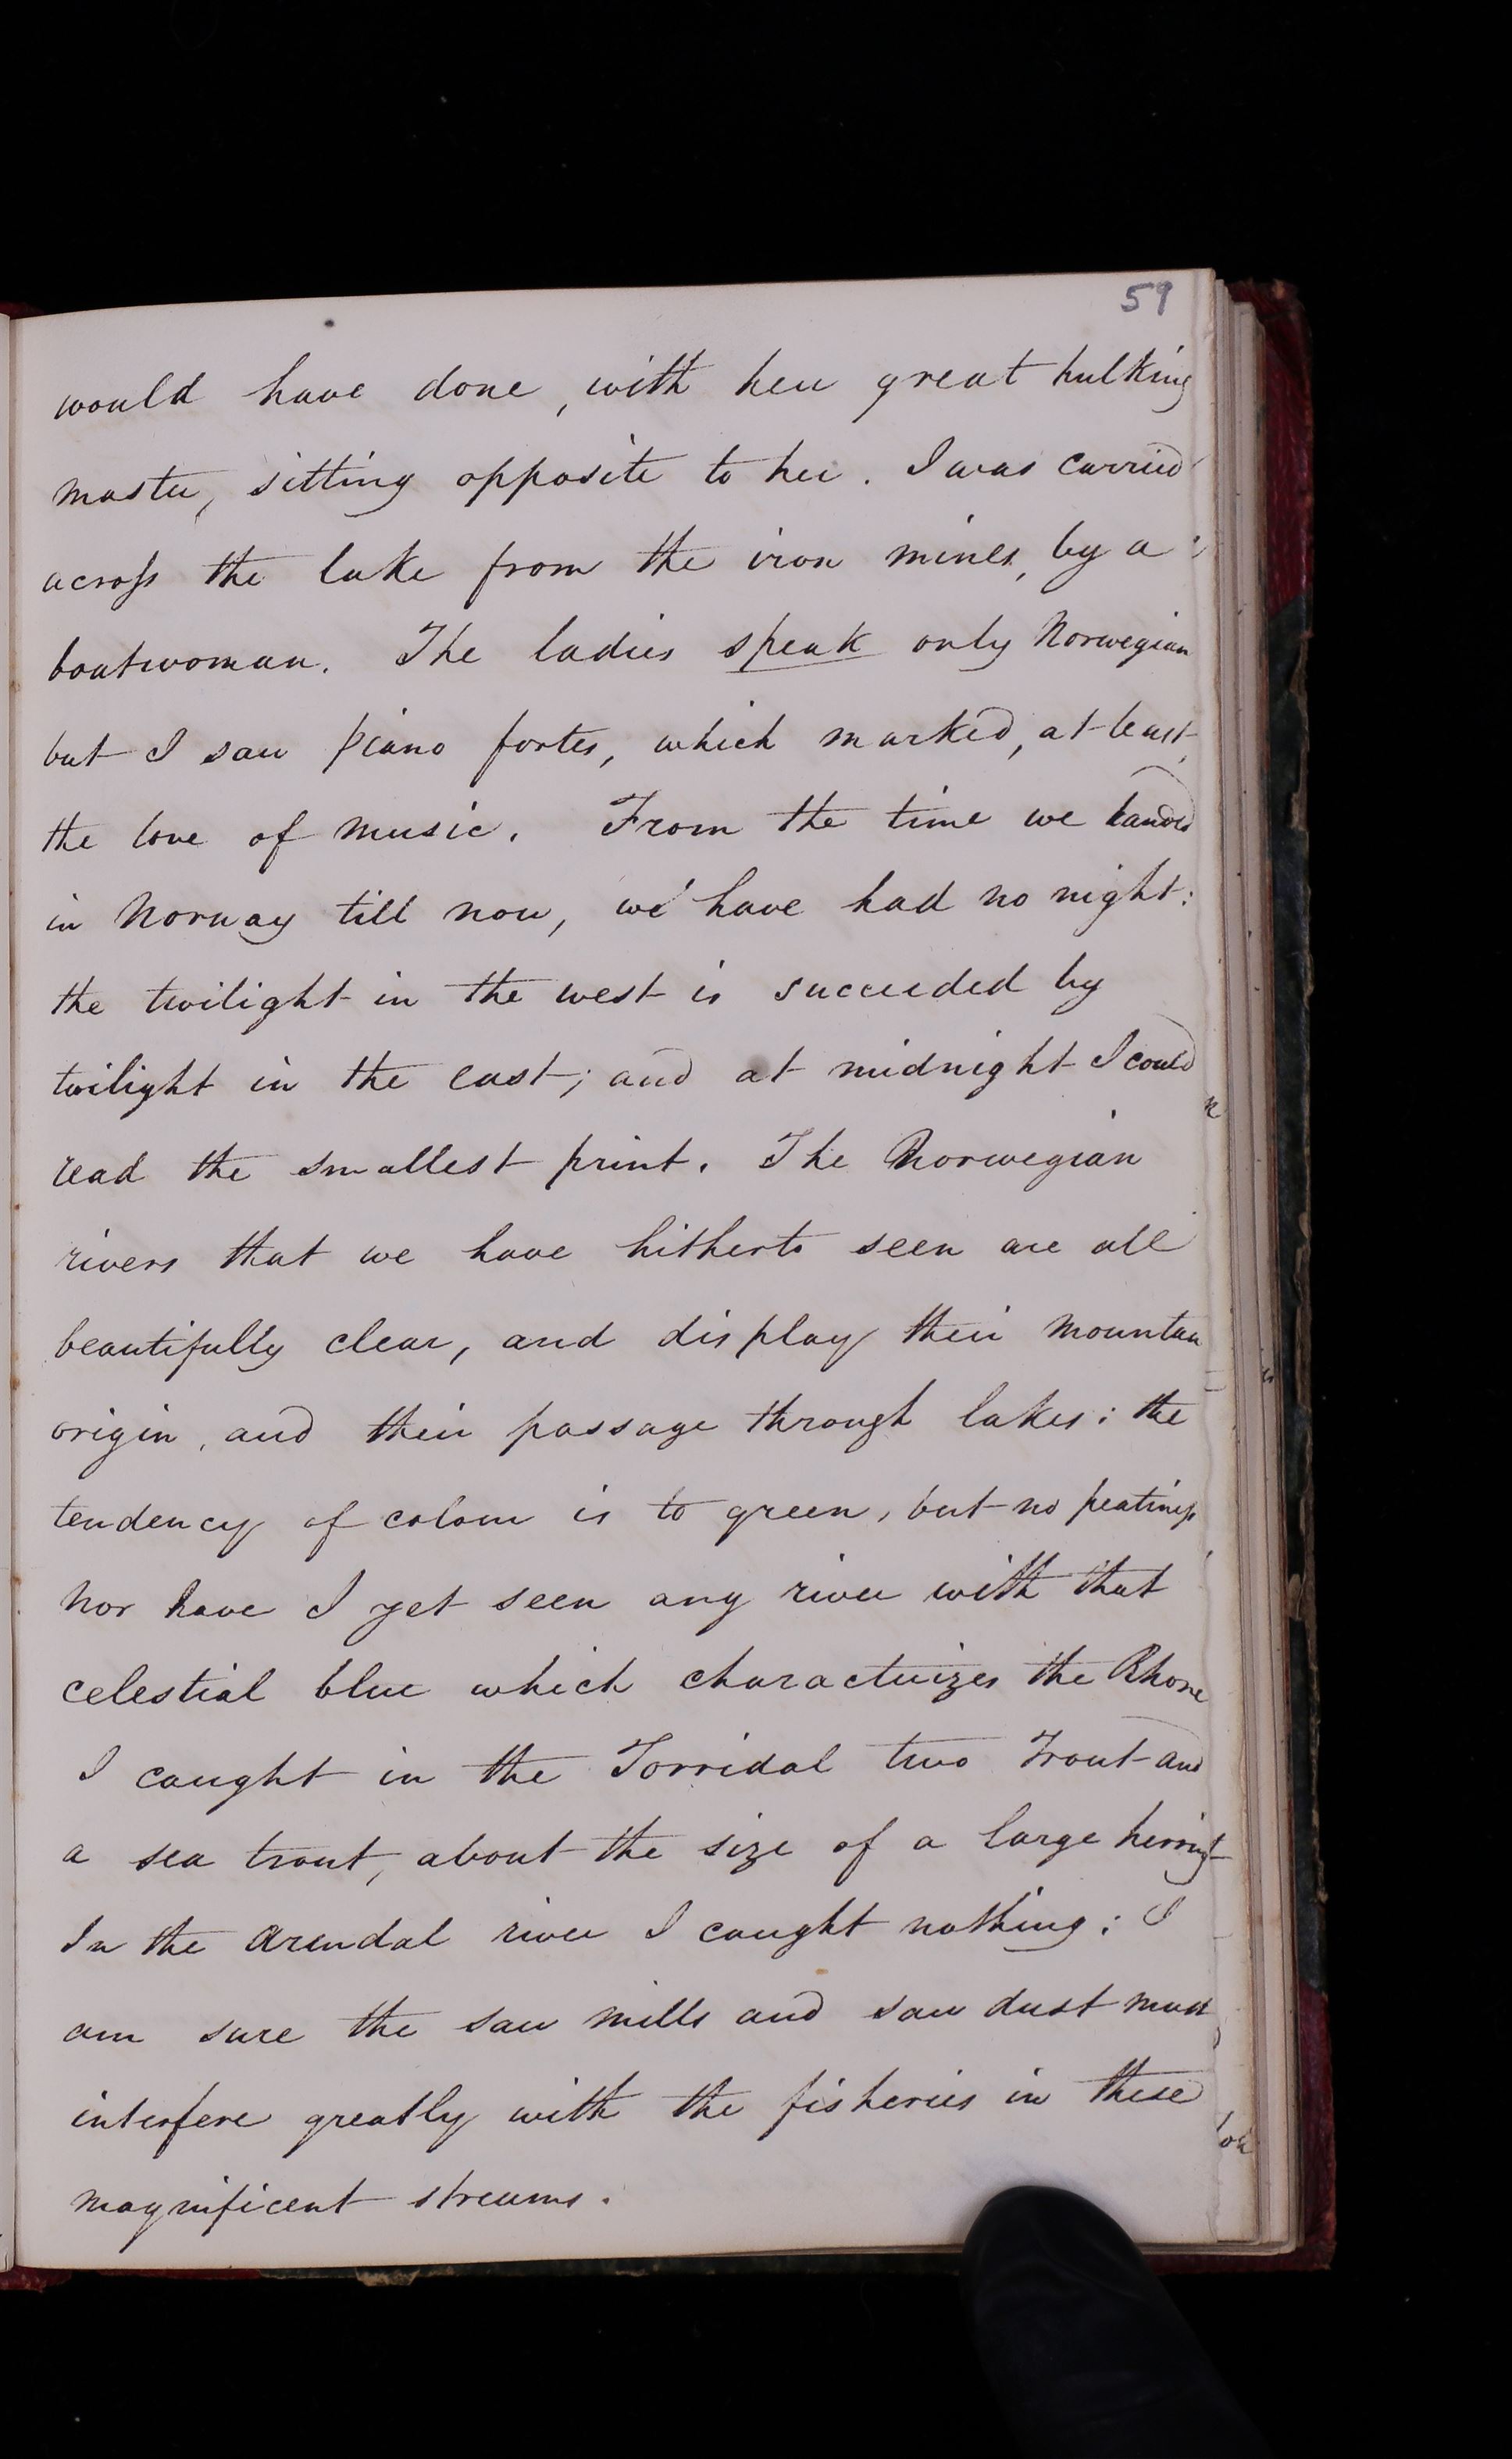 59
would have done, with her great hulking
master, sitting opposite to her. I was carried
across the lake from the iron mines, by a
boatwoman. The ladies speak only Norwegian
but I saw piano fortes, which marked, at least,
the love of music. From the time we landed
in Norway till now, we have had no night:
the twilight in the west is succeeded by
twilight in the east; and at midnight I could
read the smallest print. The Norwegian
rivers that we have hitherto seen are all
beautifully clear, and display their mountain
origin, and their passage through lakes: the
tendency of colour is to green, but no peatiness
nor have I yet seen any river with that
celestial blue which characterizes the Rhone
I caught in the Torridal two Trout and
a sea trout, about the size of a large herring
In the Arendal river I caught nothing: I
am sure the saw mills and saw dust must
interfere greatly with the fisheries in these
magnificent streams.